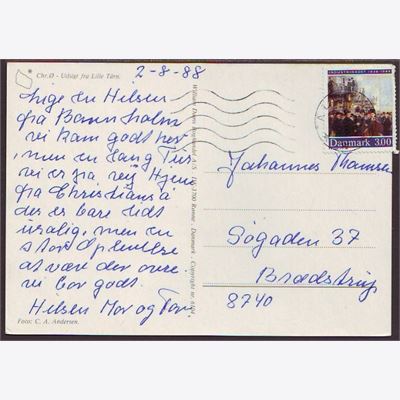 Chr.Ø - Udsigt fra Lille Tårn.
2-8-88
Lige en Hilsen
fra Bornholm
vi kam godt her
men en lang Tur
vi er på vej Hjem
fra Christiansø
der er bare lidt
men en
stor Oplevelse
at være der ovre
vi bor godt.
Hilsen Mor og Far.
Foto: C. A. Andersen.
3700 Rønne - Danmark - Copyright nr.
Danmark 3.00
Johannes Thomsen
Søgaden 37
Brædstrup
8740